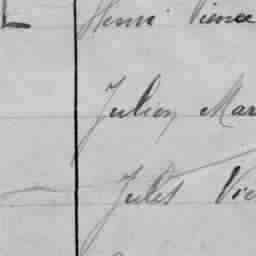 Henri Pierre
Julien Mar
Jules Vic